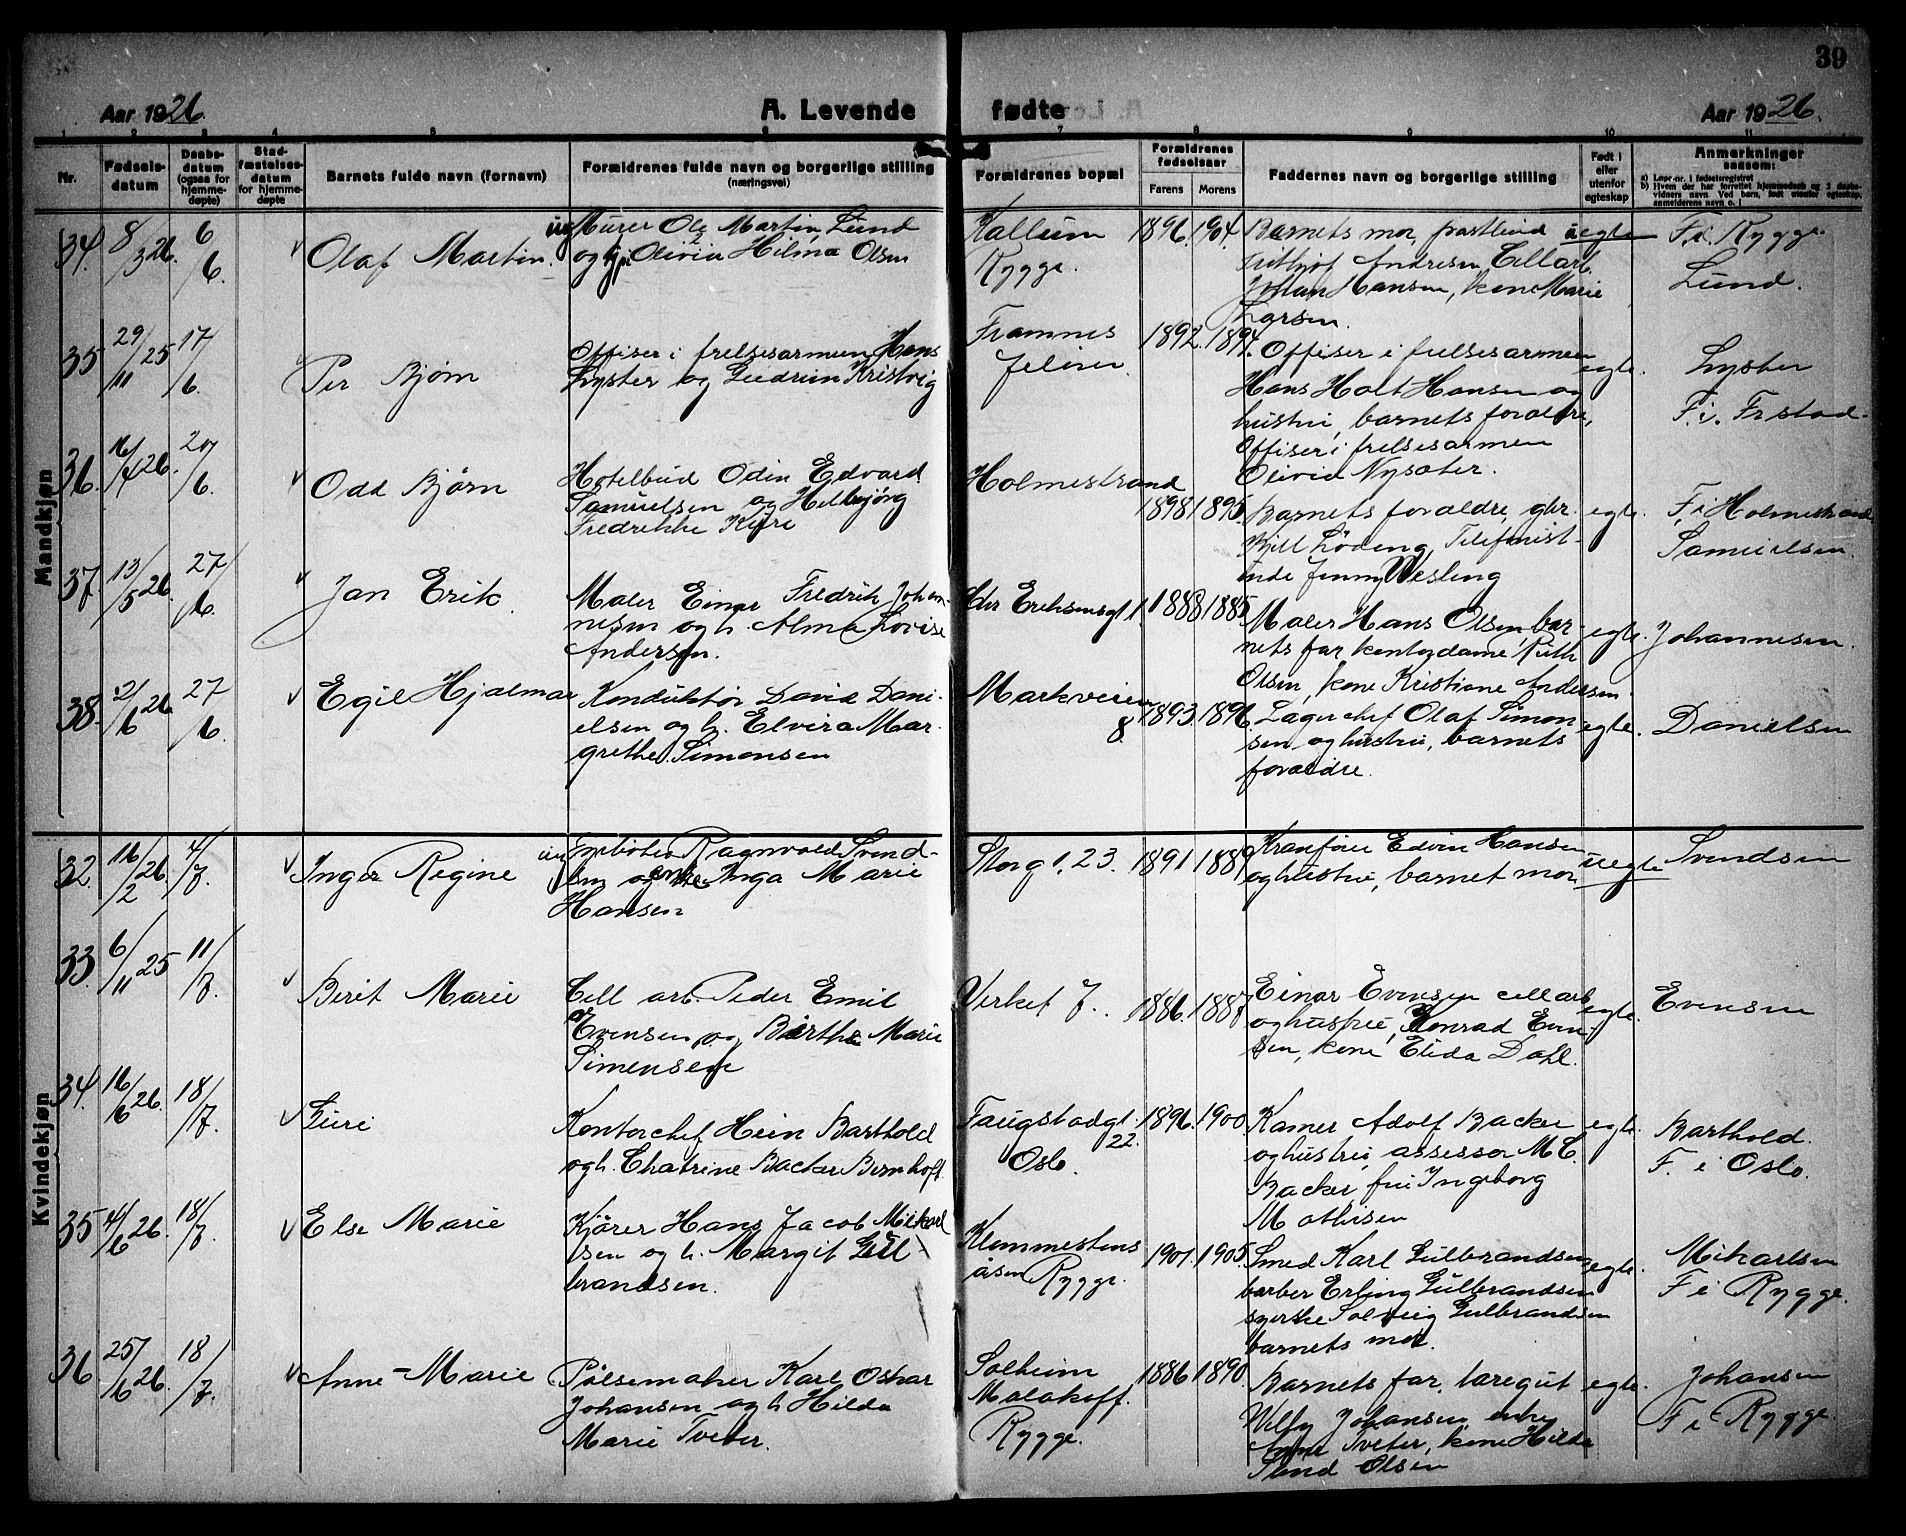 39
Aar 1926.
A. Levende
fødte
Aar 1926.
1 2 3 4 5 6 7 8 9 10 11
Nr.
Fødsels-
datum
Daabs-
datum
(ogsaa for
hjemme-
døpte)
Stad-
fæstelses-
datum
for hjemme-
døpte
Barnets fulde navn (fornavn)
Forældrenes fulde navn og borgerlige stilling
(næringsvei)
Forældrenes bopæl
Forældrenes
fødselsaar
Farens Morens
Faddernes navn og borgerlige stilling
Født i
eller
utenfor
egteskap
Anmerkninger
saasom:
a) Løpr.-nr. i fødselsregistret
b) Hvem der har forrettet hjemmedaab og 2 daabs-
vidners navn. Ved barn, født utenfor egteskap,
anmelderens navn o. l
Mandkjøn
34. 8/3 26. 6/6. Olaf Martin.
Murer Ole Martin Lund
og Olivia Hilma Olsen
Kallum
Rygge.
1896. 1904.
Barnets mor, uegte
Andresen Cellarb.
Johan Hansen, kone Marie
Larsen.
F. i. Rygge.
Lund.
35 29/11 25 17/6. Per Bjørn
Offiser i frelsesarmeen Hans
Lyster og Gudrun Kristvig
Framnes
Jeløien.
1892. 1894.
Offiser i frelsesarmeen
Hans Holt Hansen og
hustru, barnets forældre,
Offiser i frelsesarmen
Olivia Nysæter.
egte.
Lyster
F. i. Frstad.
36. 16/4 26. 20/6. Odd Bjørn
Hotelbud Odin Edvard
Samuelsen og Helbjørg
Fredrikke Kure
Holmestrand
1898 1895.
Barnets forældre, gbr.
Kjell Lødeng, Telefonist-
inde Jenny Wesling
egte.
F. i Holmestrand
Samuelsen.
37. 13/5 26. 27/6. Jan Erik.
Maler Einar Fredrik Johan-
nesen og h. Alma Lovise
Andersen.
Chr Erichsensgt 1. 1888 1885
Maler Hans Olsen, bar-
nets far, kontordame Ruth
Olsen, kone Kristiane Andersen.
egte.
Johannesen.
38. 2/6 26 27/6. Egil Hjalmar
Konduktør David Dani-
elsen og h. Elvira Mar-
grethe Simonsen
Markveien
8.
1893. 1896.
Lagerchef Olaf Simon-
sen og hustru, barnets
forældre.
egte.
Danielsen
Kvindekjøn
32. 16/2 26. 4/7. Inger Regine
Ragnvald Svend-
sen og enke Inga Marie
Hansen
Storg. 23. 1891 1889
Kranfører Edvin Hansen
og hustru, barnet mor.
uegte
Svendsen
33. 6/11 25 11/7. Berit Marie
Cell arb. Peder Emil
Evensen og Birthe Marie
Simensen
Verket J. 1886. 1887
Einar Evensen cellarb
og hustru, Konrad Even-
sen, kone Elida Dahl.
egte.
Evensen
34. 16/6 26. 18/7. Guri
Kontorchef Hein Barthold
og h. Chatrine Backer Bernhoft
Faugstadgt.
22.
Oslo.
1896. 1900.
Kamer Adolf Backer
og hustru, assessor M. C.
Backer, fru Ingeborg
Mathisen
egte.
Barthold.
F. i Oslo.
35 4/6 26. 18/7. Else Marie
Kjører Hans Jacob Mikael
sen og h. Margit Gul-
brandsen.
Klommestens
åsen Rygge.
1901. 1905
Smed Karl Gulbrandsen
barber Erling Gulbrandsen
syerske Solveig Gulbrandsen
barnets mor.
egte.
Mikaelsen
F i Rygge.
36. 25/6 26. 18/7. Anne-Marie
Pølsemaker Karl Oskar
Johansen og h Hilda
Marie Tveter.
Solheim
Malakoff.
Rygge.
1886 1890.
Barnets far, laregut
Willy Johansen, enke
Anne Tveter, kone Hilda
Olsen
egte.
Johansen
F i Rygge.